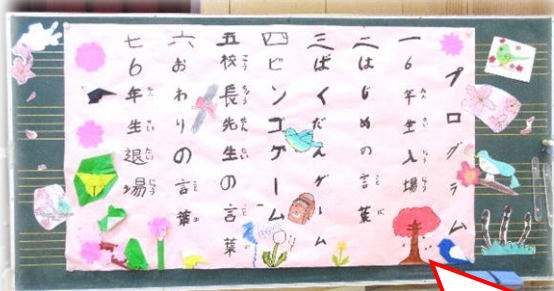 プログラム
一 6年生入場
二 はじめの言葉
三 ばくだんゲーム
四 ビンゴゲーム
五 校長先生の言葉
六 おわりの言葉
七 6年生退場